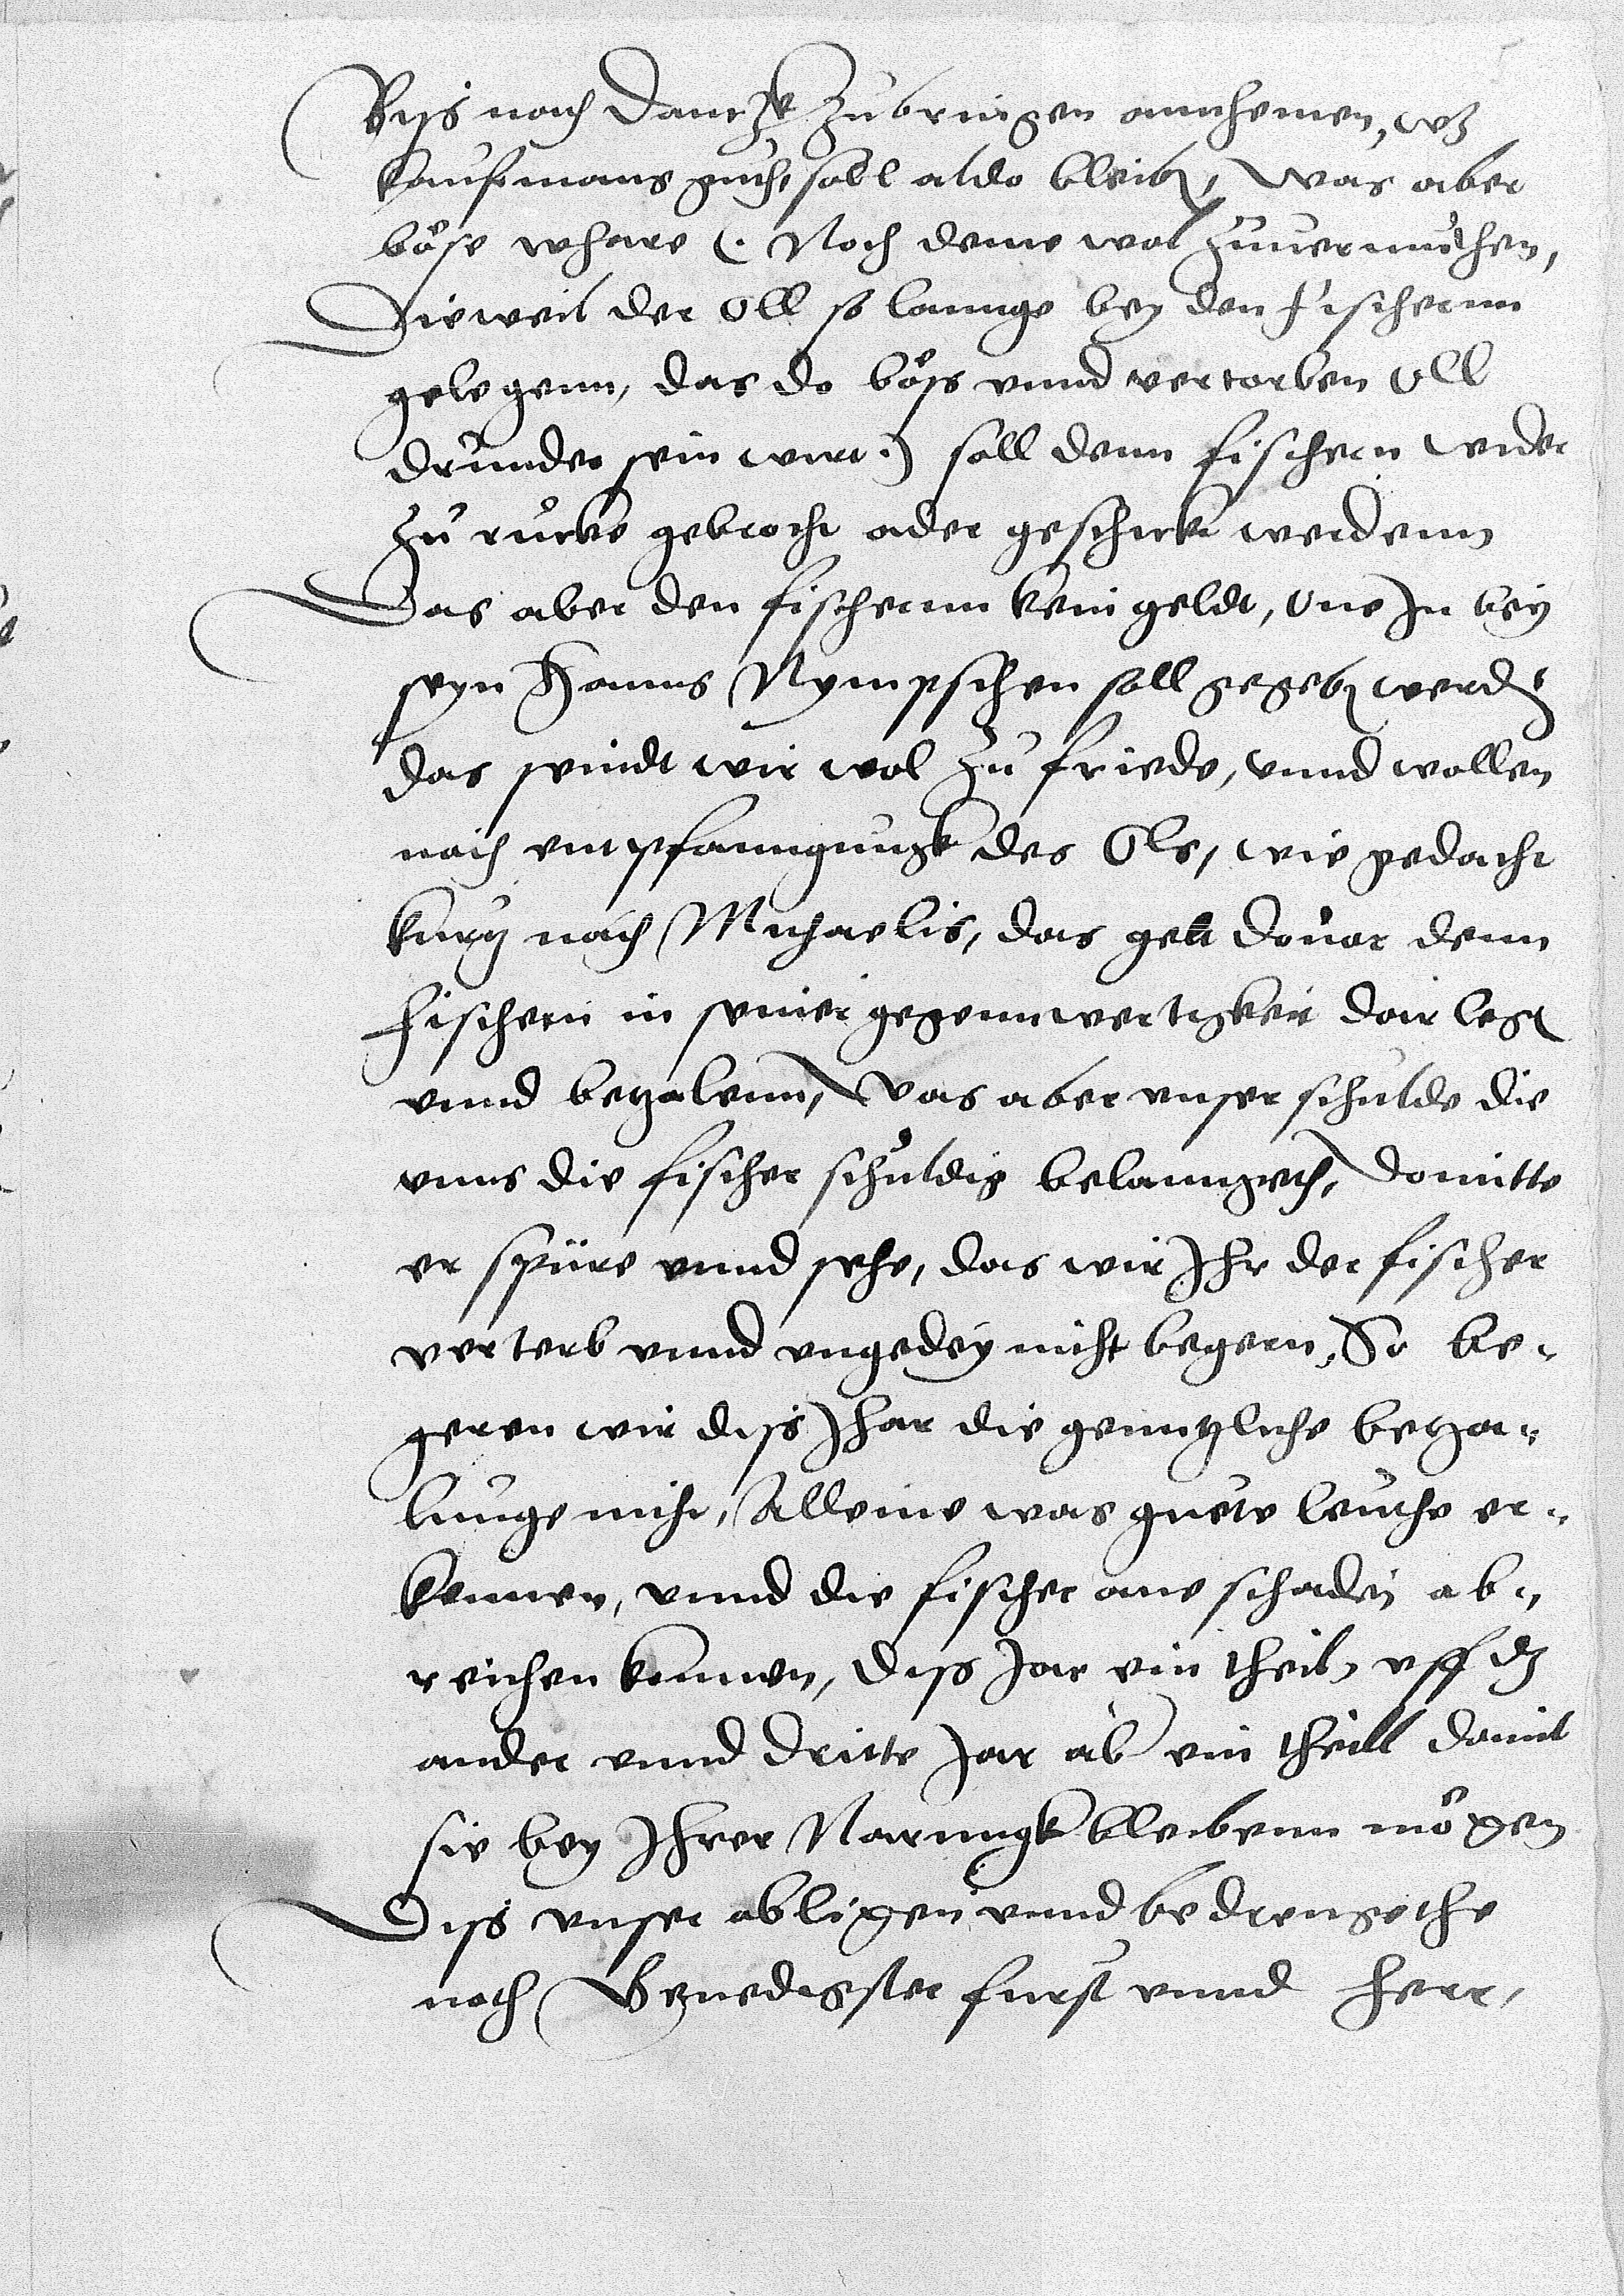 Biss nach Dantzk zubringen annhemen, wz
kaufmans guth, soll aldo bleibn, was aber
böse whare (. Noch deme wol zuuermuthen,
Dieweil der Oll so lannge bey den fischernn
gelegenn, das do böss vnnd vertorben Oll
drunder sein wirt .) soll denn fischern wider
zu rucke gebrocht ader geschickt werdenn
Das aber den fischernn kein geldt, one In bey
seyn Hanns Nympschen soll gegebn werdn
das seindt wir wol zu friede, vnnd wollen
nach entpfanngungk des Ols, wie gedacht
kurtz nach Michaelis, das gelt douor denn
fischern in seiner gegennwertigkeit dar legn
vnnd betzalenn, Was aber vnser schulde die
vnns die fischer schuldig belanngeth, domitte
er spüre vnnd sehe, das wir Ihr der fischer
verterb vnnd vngedey nicht begern, So be-
geren wir diss Ihar die genntzliche betza-
lunge nicht, Alleine was guete leuthe er-
kennen, vnnd die fischer ane schaden ab-
reichen konnen, diss Jar ein theil, vff dz
ander vnnd dritte Jar ab ein theill domit
sie bey Ihrer Narungk bleibenn mögen
Diss vnser obligen vnnd bedrengethe
noth Genedigster furst vnnd herr,